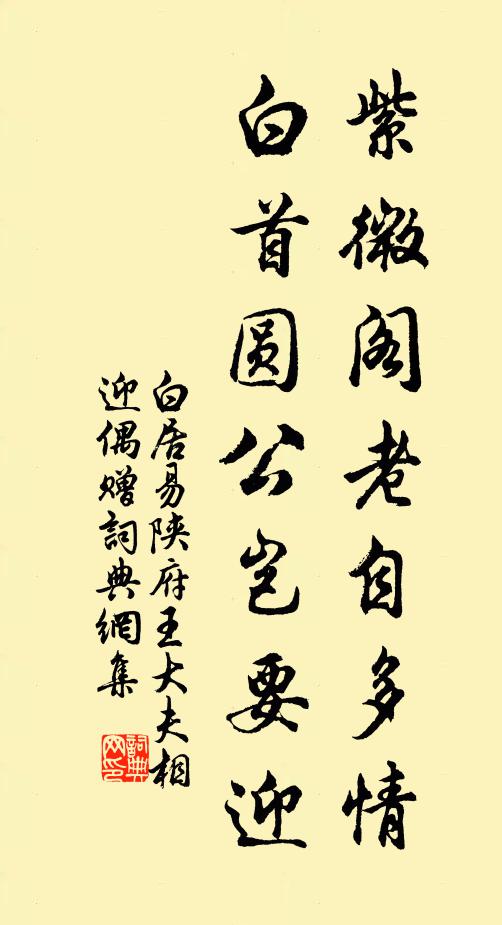 紫微阁老自多情
白首圆公岂要迎
白居易陕府王大夫相
迎偶赠詞典網集
詞典
网印